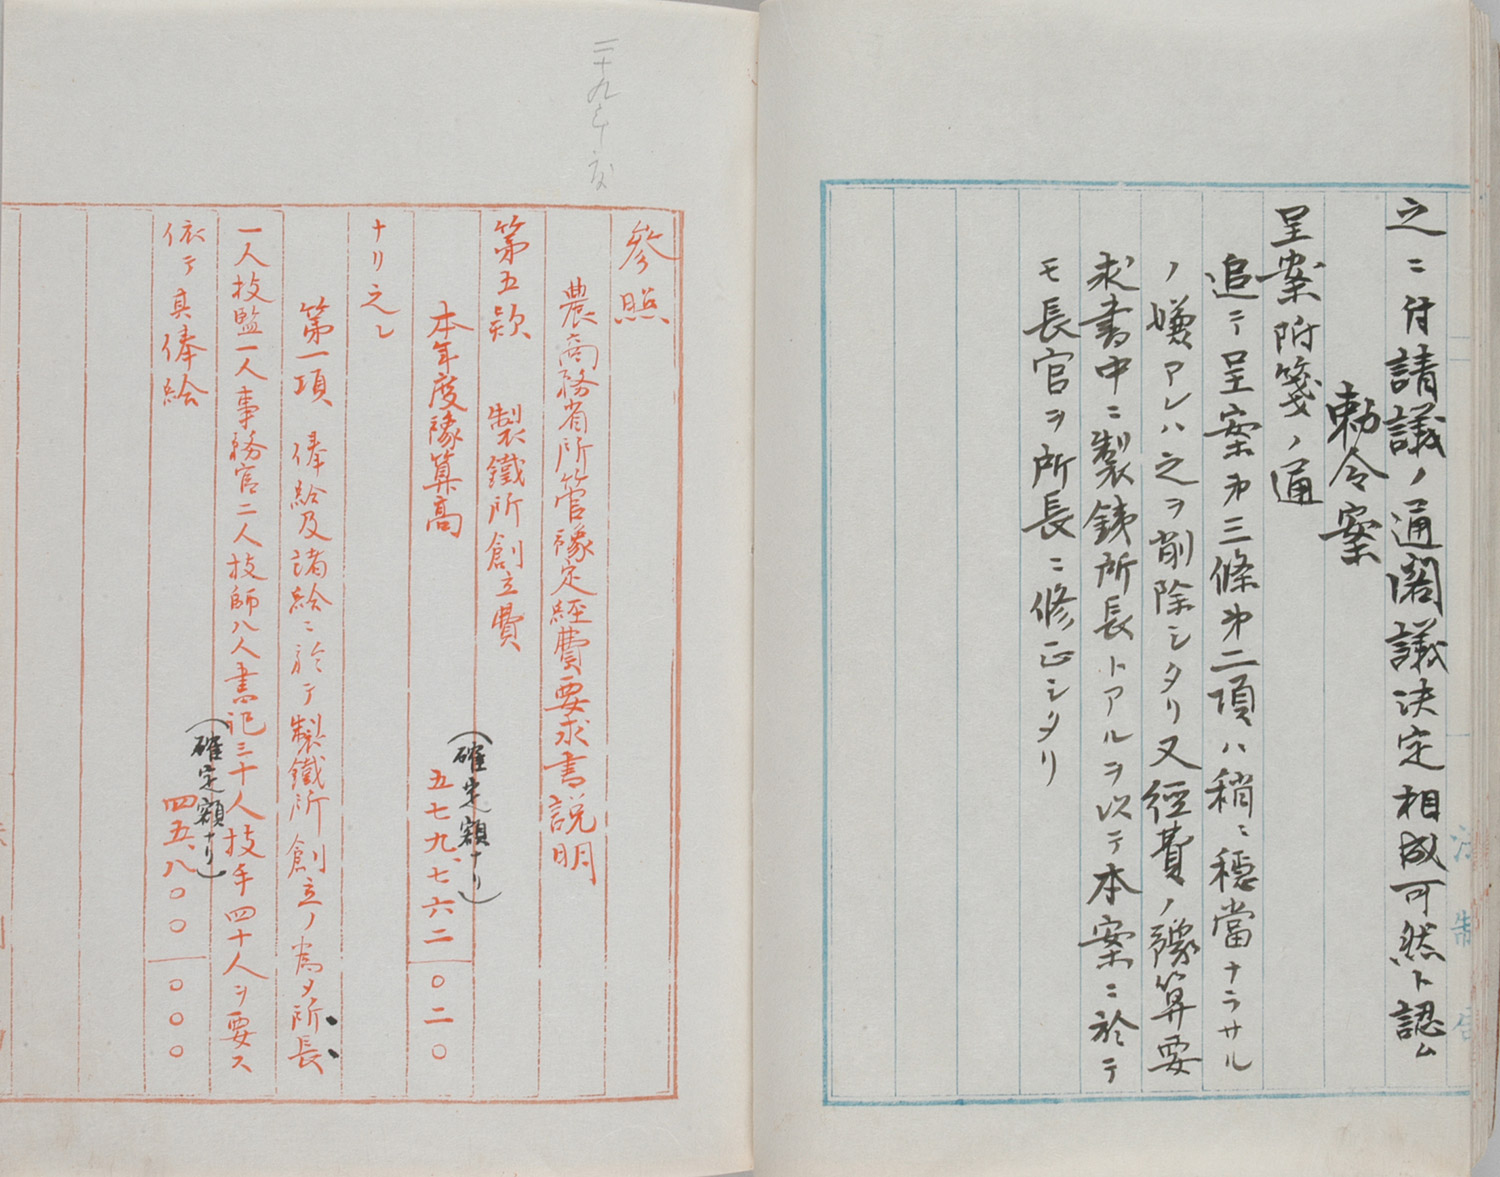 之ニ付請議ノ通閣議決定相成可然ト認ム
勅令案
呈案附箋ノ通
追テ呈案第三條第二項ハ稍ミ穩當ナラサル
ノ嫌アレハ之ヲ削除シタリ又經費ノ豫算要
求書中ニ製鉄所長トアルヲ以テ本案ニ於テ
モ長官ヲ所長ニ修正シタリ
法制局
二十九年度
參照
農商務省所管豫定經費要求書説明
第五款 製鐵所創立費
(確定額ナリ)
本年度豫算高 五七九、七六二 〇二〇
ナリ之レ
第一項 俸給及諸給ニ於テ製鐵所創立ノ為メ所長
一人技監一人事務官二人技師八人書記三十人技手四十人ヲ要ス
(確定額ナリ)
依テ其俸給 四五、八〇〇 〇〇〇